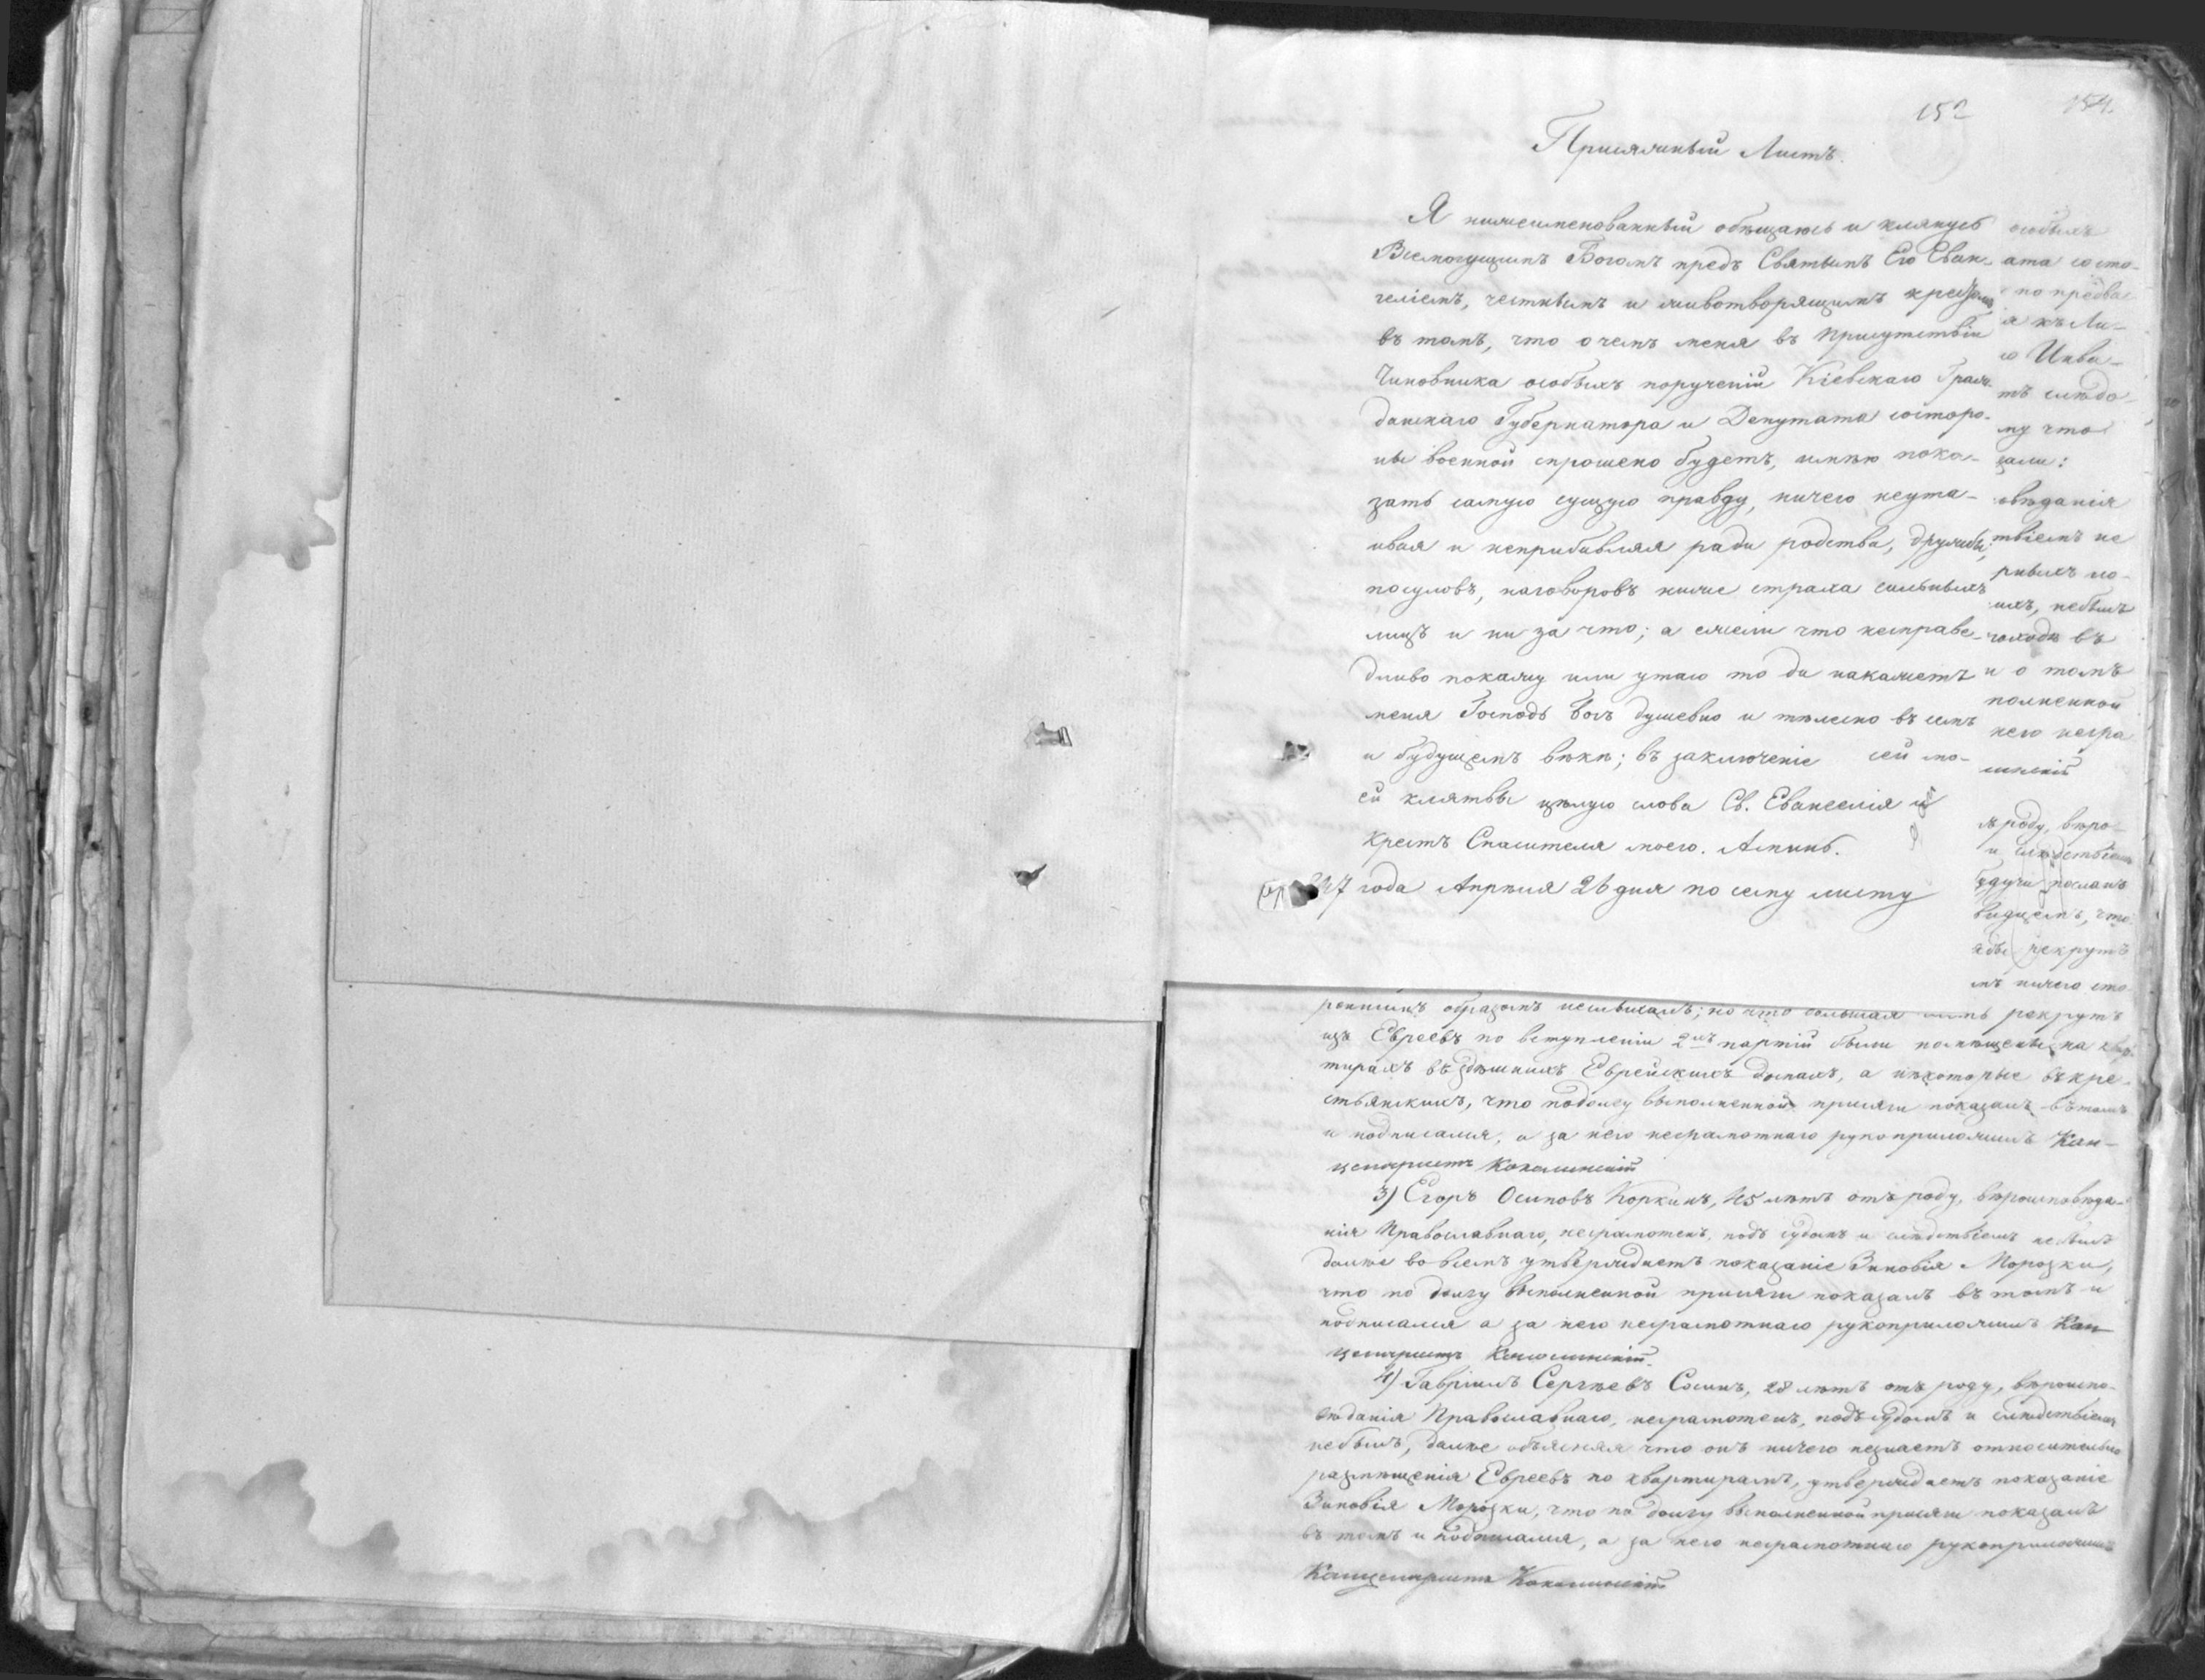 152
154.
Присяжный Листъ.
Я нижеименованный обѣщаюсь и клянусь
Всемогущимъ Богомъ предъ Святымъ Его Еван-
геліемъ, честнымъ и животворящимъ крестомъ
въ томъ, что о чемъ меня въ присутствіи
Чиновника особыхъ порученій Кіевскаго Граж-
данскаго Губернатора и Депутата состоро-
ны военной спрошено будетъ, имѣю пока-
зать самую сущую правду, ничего неута-
ивая и неприбавляя ради родства, дружбы,
посуловъ, наговоровъ ниже страха сильныхъ
лицъ и ни за что; а ежели что несправе-
дливо покажу или утаю то да накажетъ
меня Господь Богъ душевно и тѣлесно въ семъ
и будущемъ вѣкѣ; въ заключеніе сей мо-
ей клятвы цѣлую слова Св. Евангелія и
Крестъ Спасителя моего. Аминь.
847 года Апрѣля 26 дня по сему листу
особыхъ
ата состо-
по предва
я къ Ли-
го Инва-
тъ слѣдо-
му что
зали:
овѣданія
твіемъ не
ихъ, небылъ
въ
и о томъ
полненной
него негра
ъ роду, вѣро-
и слѣдствіемъ
будучи посланъ
видцемъ, что
абы рекрутъ
мъ ничего сто-
роннимъ образомъ неслыхалъ; но что большая часть рекрутъ
изъ Евреевъ по вступленіи 2хъ партій были помѣщены на квар-
тирахъ въ здѣшнихъ Еврейскихъ домахъ, а нѣкоторые въ кре-
стьянскихъ, что подолгу выполненной присяги показалъ въ томъ
и подписался, а за него неграмотнаго рукоприложилъ Кан-
целяристъ
3) Егоръ Осиповъ Коркинъ, 45 лѣтъ отъ роду, вѣроисповѣда-
нія Православнаго, неграмотенъ, подъ судомъ и слѣдствіемъ небылъ
далѣе во всемъ утверждаетъ показаніе Зиновія Морозки,
что по долгу выполненной присяги показалъ въ томъ и
подписался а за него неграмотнаго рукоприложилъ Кан-
целяристъ
4) Гавріилъ Сергѣевъ Соминъ, 28 лѣтъ отъ роду, вѣроиспо-
вѣданія Православнаго, неграмотенъ, подъ судомъ и слѣдствіемъ
небылъ, далѣе объясняя что онъ ничего незнаетъ относительно
размѣщенія Евреевъ по квартирамъ, утверждаетъ показаніе
Зиновія Морозки, что по долгу выполненной присяги показалъ
въ томъ и подписался, а за него неграмотнаго рукоприложилъ
Канцеляристъ